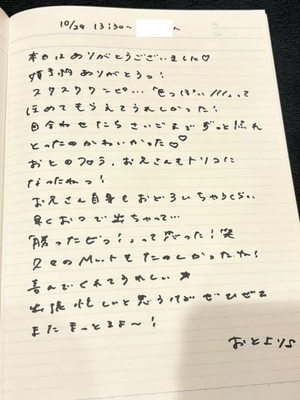 10/29 13:30〜 ん
本日はありがとうございました♡
ありがとうっ!
スクスクタンピ… 色っぽい///って
ほめてもらえてうれしかった!
目合わせたらさいごまでずっと
とったのかわいかった♡♡
おとのフロう、お兄さんもトリコに
なったねっ!
お兄さん自身もおどろいちゃうくらい
早くおつで出ちゃって…
勝ったピっ!って思った!笑
久々のMnetもたのしかったね!
喜んでくれてうれしい★
出張忙しいと思うけどぜひぜひ
またまってるよ〜!
おとより